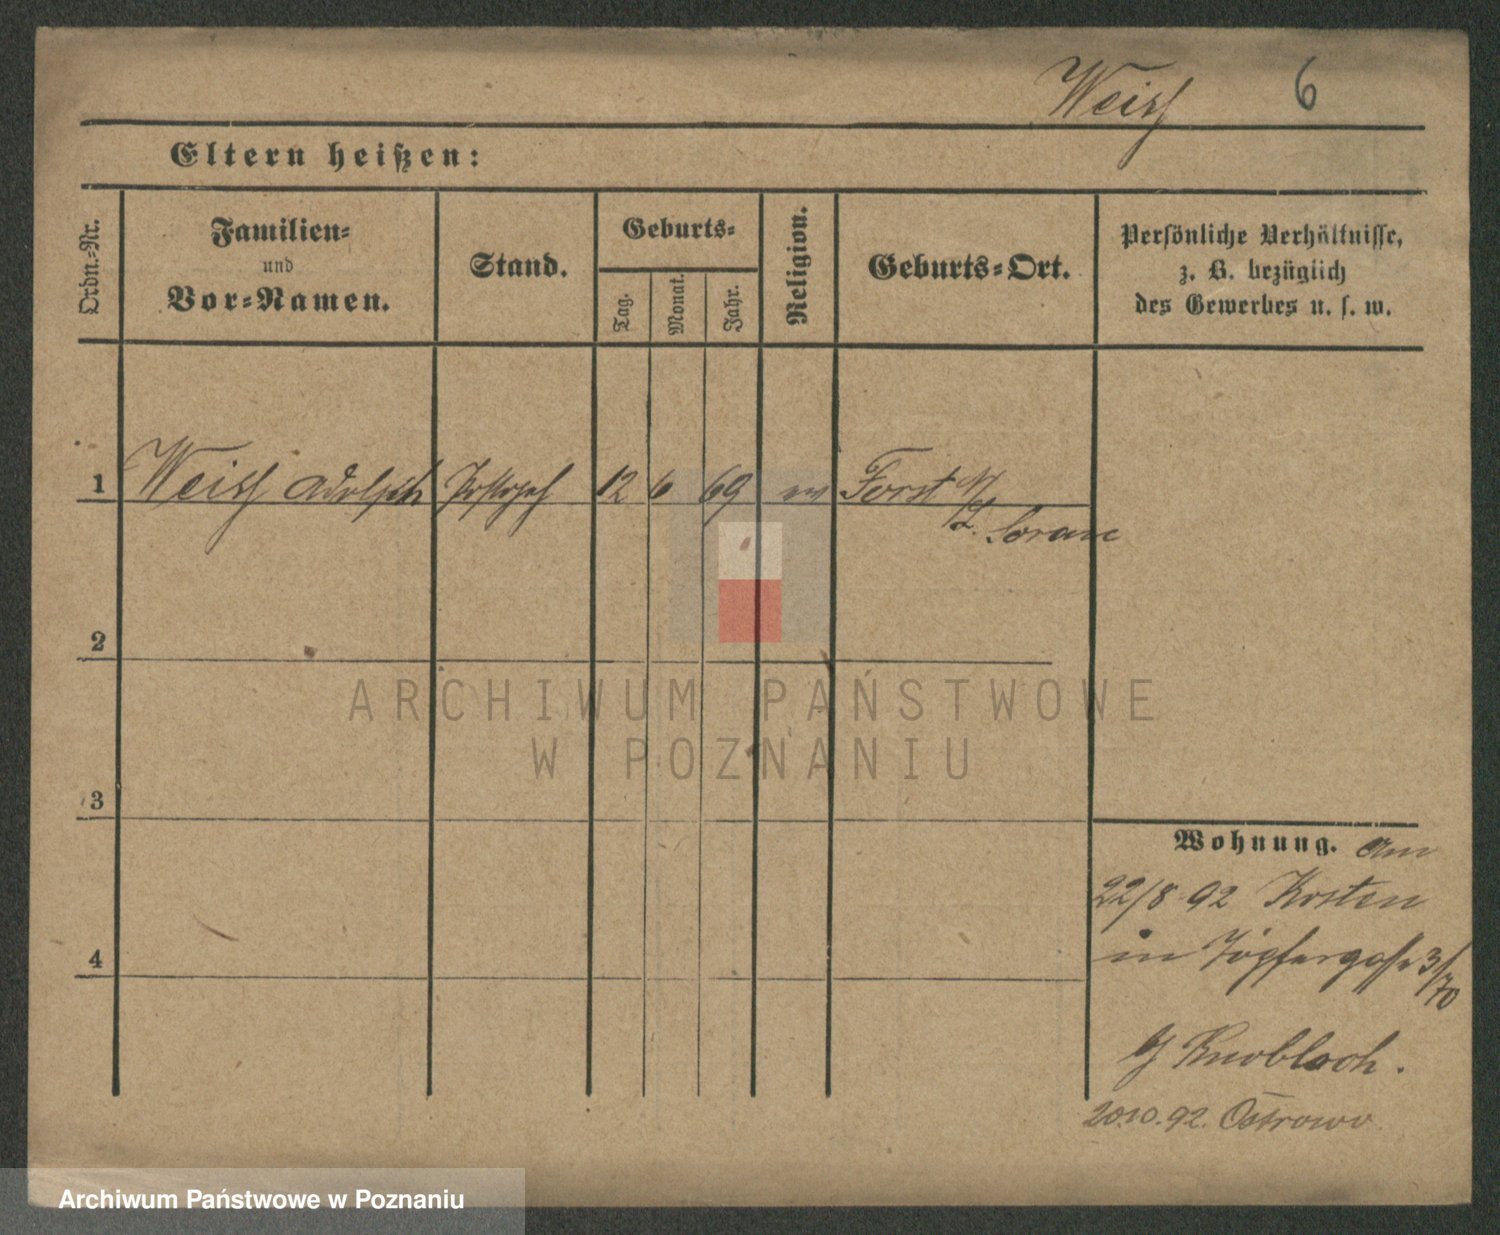 Weiß 6
Eltern heißen:
Ordn.-Nr.
Familien-
und
Vor-Namen.
Stand.
Geburts-
Tag.
Monat.
Jahr.
Religion.
Geburts-Ort.
Persönliche Verhältnisse,
z. B. bezüglich
des Gewerbes u. s. w.
1 Weiß Adolph 12 6 69 ev Forst N/L.
Sorau
2
3
4
Wohnung. Am
22/8 92 Kosten
in Töpfergasse 3/70
b/ Knobloch.
20.10.92. Ostrowo.
ARCHIWUM PAŃSTWOWE
W POZNANIU
Archiwum Państwowe w Poznaniu